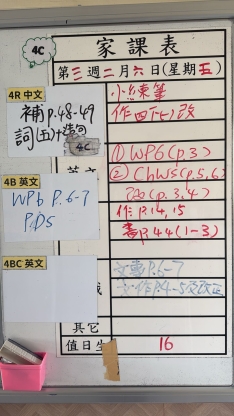 4C
家課表
第三週二月六日(星期五)
4R 中文
補p.48-49
詞(五)+
4C
小練筆
作四 改
① WP6(p.3)
② ChW5(p.5,6)
(p.3,4)
4B 英文
WPb P.6-7
作P.14,15
書P.44(1-3)
4BC 英文
P.6-7
作P.4-5及改正
其它
值日生
16